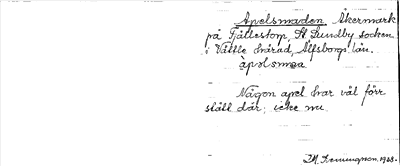 Apelsmaden Åkermark
på Fjällestorp, St Lundby socken
i Vättle härad, Älfsborgs län.
àpəlsmoa
Någon apel har väl förr
ställ där; icke nu.
1928.